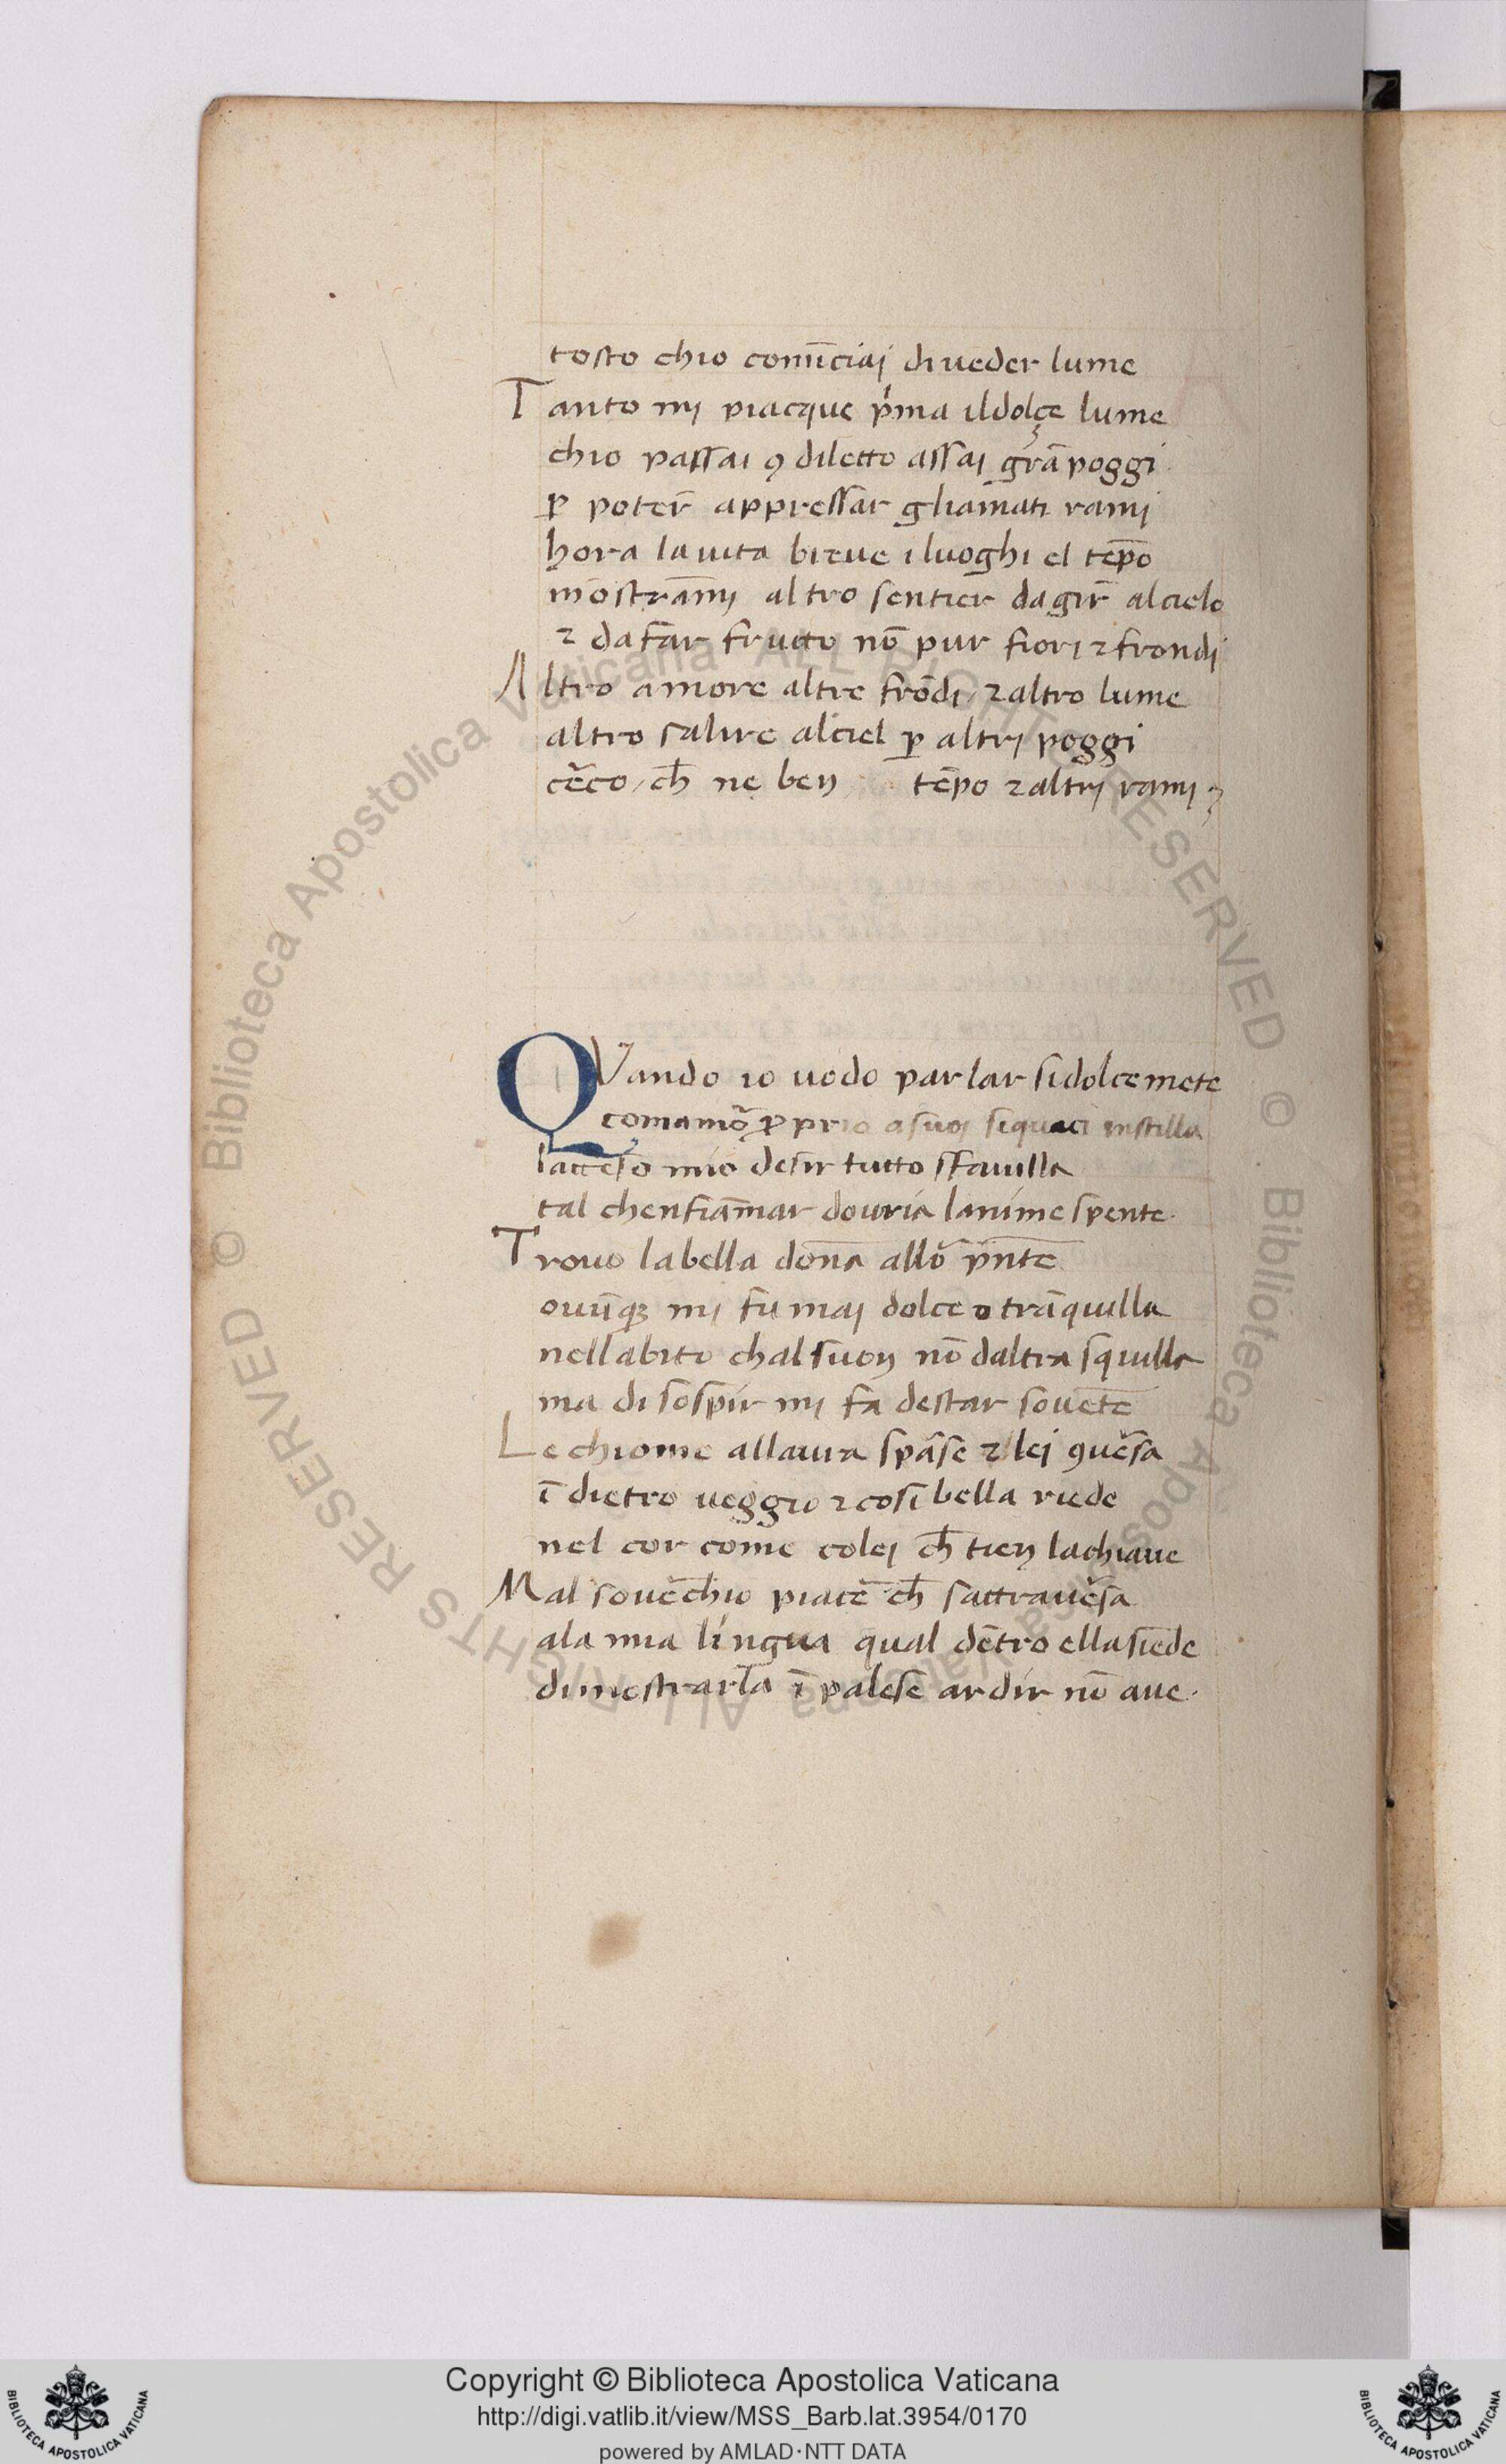 tosto chio comı̄ciaj di ueder lume
Tanto mj piacque pͥma il dolçe lume
chio passai ꝯ diletto assaj grā poggi
ꝑ poter̄ appressar gliamati ramj
hora la uita breue i luoghi el tēpo
mostrāmj altro sentier da gir̄ al cielo
⁊ da far fructo nō pur fiori ⁊ frondj
Altro amore altre frōdi / ⁊ altro lume
altro salire al ciel ꝑ altrj poggi
cʳco / ch̄ ne ben tēpo ⁊ altrj ramj
QVando io uodo parlar si dolcemēte
comamoʳ ꝓprio a suoj siquaci instilla
lacceso mio desir tutto sfauilla
tal chenfiāmar douria lanime spente
Trouo la bella dōna alloʳ pn̄te
ouūqꝫ mj fu maj dolce o trāquilla
nellabito chal suon nō daltra squilla
ma di sospir mj fa destar souēte
Le chiome allaura sparse ⁊ lej ꝯuersa
ī dietro ueggio ⁊ cosi bella riede
nel cor come colej ch̄ tien la chiaue
Mal souerchio piacer ch̄ sattrauersa
ala mia lingua qual dētro ella siede
di mostrarla ī palese ardir nō aue.
Copyright © Biblioteca Apostolica Vaticana
http://digi.vatlib.it/view/MSS_Barb.lat.3954/0170
powered by AMLAD·NTT DATA
© Biblioteca Apostolica Vaticana ALL RIGHTS RESERVED
© Biblioteca Apostolica Vaticana ALL RIGHTS RESERVED
BIBLIOTECA APOSTOLICA VATICANA
BIBLIOTECA APOSTOLICA VATICANA